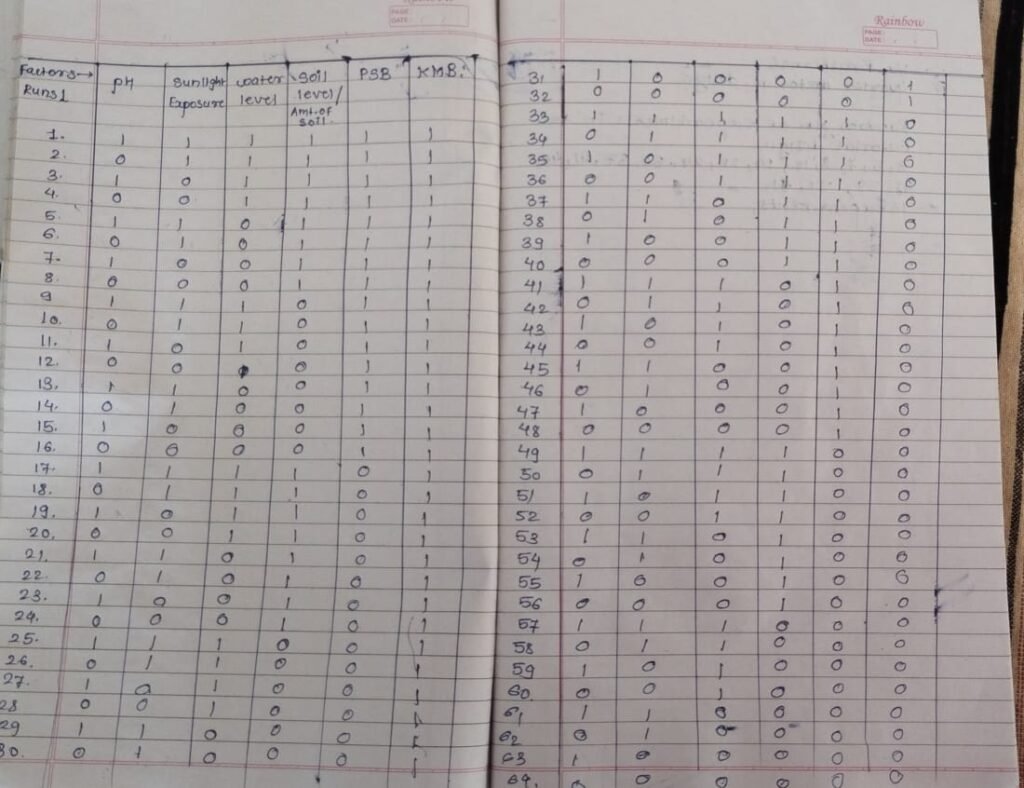 Rainbow
PAGE:
DATE:
Factors→ pH sunlight water soil PSB KMB.
Runs↓ Exposure level level/
Amt.of
soil.
1. 1 1 1 1 1 1
2. 0 1 1 1 1 1
3. 1 0 1 1 1 1
4. 0 0 1 1 1 1
5. 1 1 0 1 1 1
6. 0 1 0 1 1 1
7. 1 0 0 1 1 1
8. 0 0 0 1 1 1
9 1 1 1 0 1 1
10. 0 1 1 0 1 1
11. 1 0 1 0 1 1
12. 0 0 1 0 1 1
13. 1 1 0 0 1 1
14. 0 1 0 0 1 1
15. 1 0 0 0 1 1
16. 0 0 0 0 1 1
17. 1 1 1 1 0 1
18. 0 1 1 1 0 1
19. 1 0 1 1 0 1
20. 0 0 1 1 0 1
21. 1 1 0 1 0 1
22. 0 1 0 1 0 1
23. 1 0 0 1 0 1
24. 0 0 0 1 0 1
25. 1 1 1 0 0 1
26. 0 1 1 0 0 1
27. 1 0 1 0 0 1
28 0 0 1 0 0 1
29 1 1 0 0 0 1
30. 0 1 0 0 0 1
Rainbow
PAGE:
DATE:
31 1 0 0 0 0 1
32 0 0 0 0 0 1
33 1 1 1 1 1 0
34 0 1 1 1 1 0
35 1 0 1 1 1 0
36 0 0 1 1 1 0
37 1 1 0 1 1 0
38 0 1 0 1 1 0
39 1 0 0 1 1 0
40 0 0 0 1 1 0
41 1 1 1 0 1 0
42 0 1 1 0 1 0
43 1 0 1 0 1 0
44 0 0 1 0 1 0
45 1 1 0 0 1 0
46 0 1 0 0 1 0
47 1 0 0 0 1 0
48 0 0 0 0 1 0
49 1 1 1 1 0 0
50 0 1 1 1 0 0
51 1 0 1 1 0 0
52 0 0 1 1 0 0
53 1 1 0 1 0 0
54 0 1 0 1 0 0
55 1 0 0 1 0 0
56 0 0 0 1 0 0
57 1 1 1 0 0 0
58 0 1 1 0 0 0
59 1 0 1 0 0 0
60. 0 0 1 0 0 0
61 1 1 0 0 0 0
62 0 1 0 0 0 0
63 1 0 0 0 0 0
64. 0 0 0 0 0 0